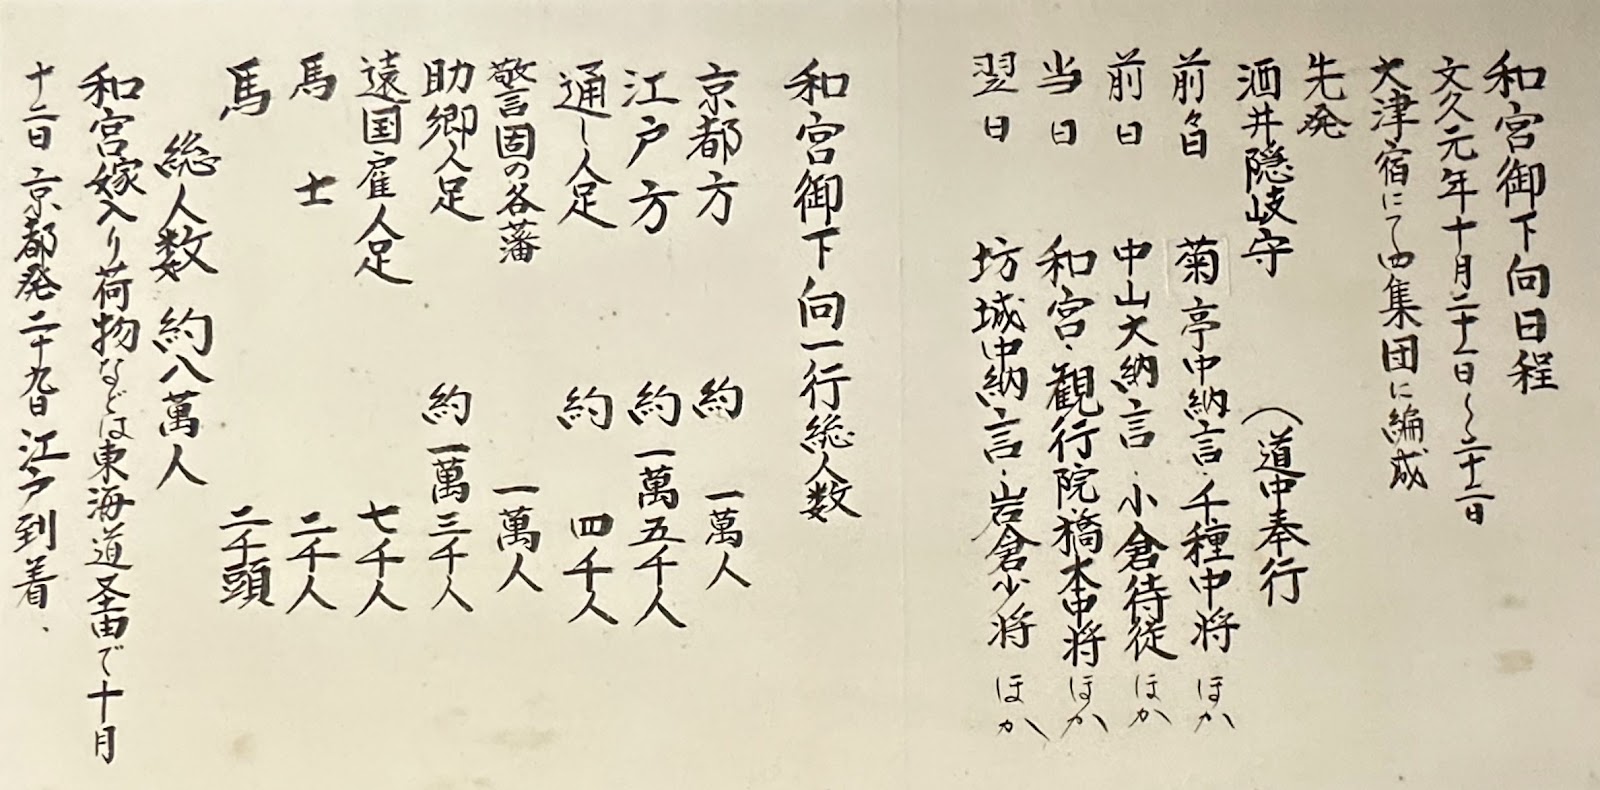 和宮御下向日程
文久元年十月二十一日〜二十二日
大津宿にて四集団に編成
先発
酒井隠岐守 (道中奉行
前々日 菊亭中納言・千種中将 ほか
前日 中山大納言・小倉待従 ほか
当日 和宮・観行院橋本中将 ほか
翌日 坊城中納言・岩倉少将 ほか
和宮御下向一行総人数
京都方 約 一萬人
江戸方 約一萬五千人
通し人足 約 四千人
警固の各藩 一萬人
助郷人足 約一萬三千人
遠国雇人足 七千人
馬士 二千人
馬 二千頭
総人数 約八萬人
和宮嫁入り荷物などは東海道圣由で十月
十二日京都発二十九日江戸到着.